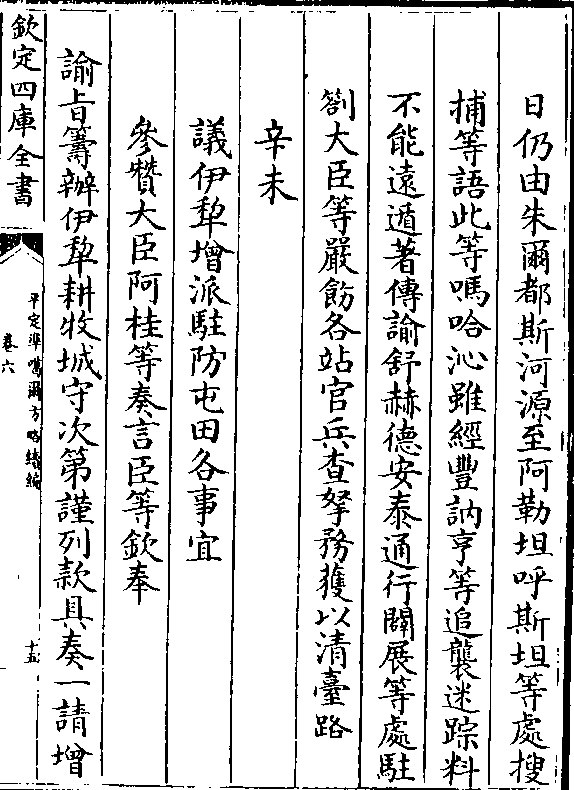 日仍由朱爾都斯河源至阿勒坦呼斯坦等處搜
捕等語此等嗎哈沁雖經豐訥亨等追襲迷踪料
不能遠遁著傳諭舒赫德安泰通行闢展等處駐
劄大臣等嚴飭各站官兵查拏務獲以清臺路
辛未
議伊犂增派駐防屯田各事宜
參贊大臣阿桂等奏言臣等欽奉
諭旨籌辦伊犂耕牧城守次第謹列款具奏一請增
欽定四庫全書
平定準噶爾方略續編
卷六
十五